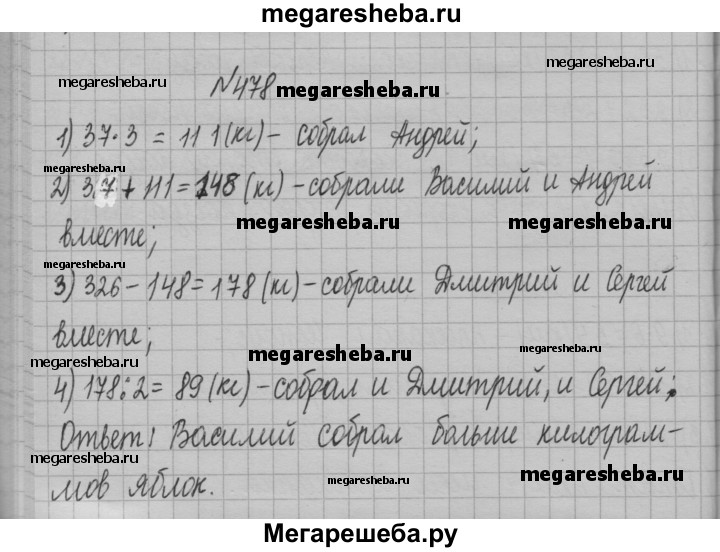 megaresheba.ru
megaresheba.ru
megaresheba.ru
№478 megaresheba.ru
1) 37·3 = 111(кг) - собрал Андрей;
megaresheba.ru
2) 37 + 111 = 148 (кг) - собрали Василий и Андрей
megaresheba.ru
megaresheba.ru
вместе;
3) 326 - 148 = 178 (кг) - собрали Дмитрий и Сергей
вместе;
megaresheba.ru
megaresheba.ru
megaresheba.ru
4) 178:2 = 89 (кг) - собрал и Дмитрий, и Сергей;
Ответ: Василий собрал больше килограм-
megaresheba.ru
megaresheba.ru
мов яблок.
Мегарешеба.ру